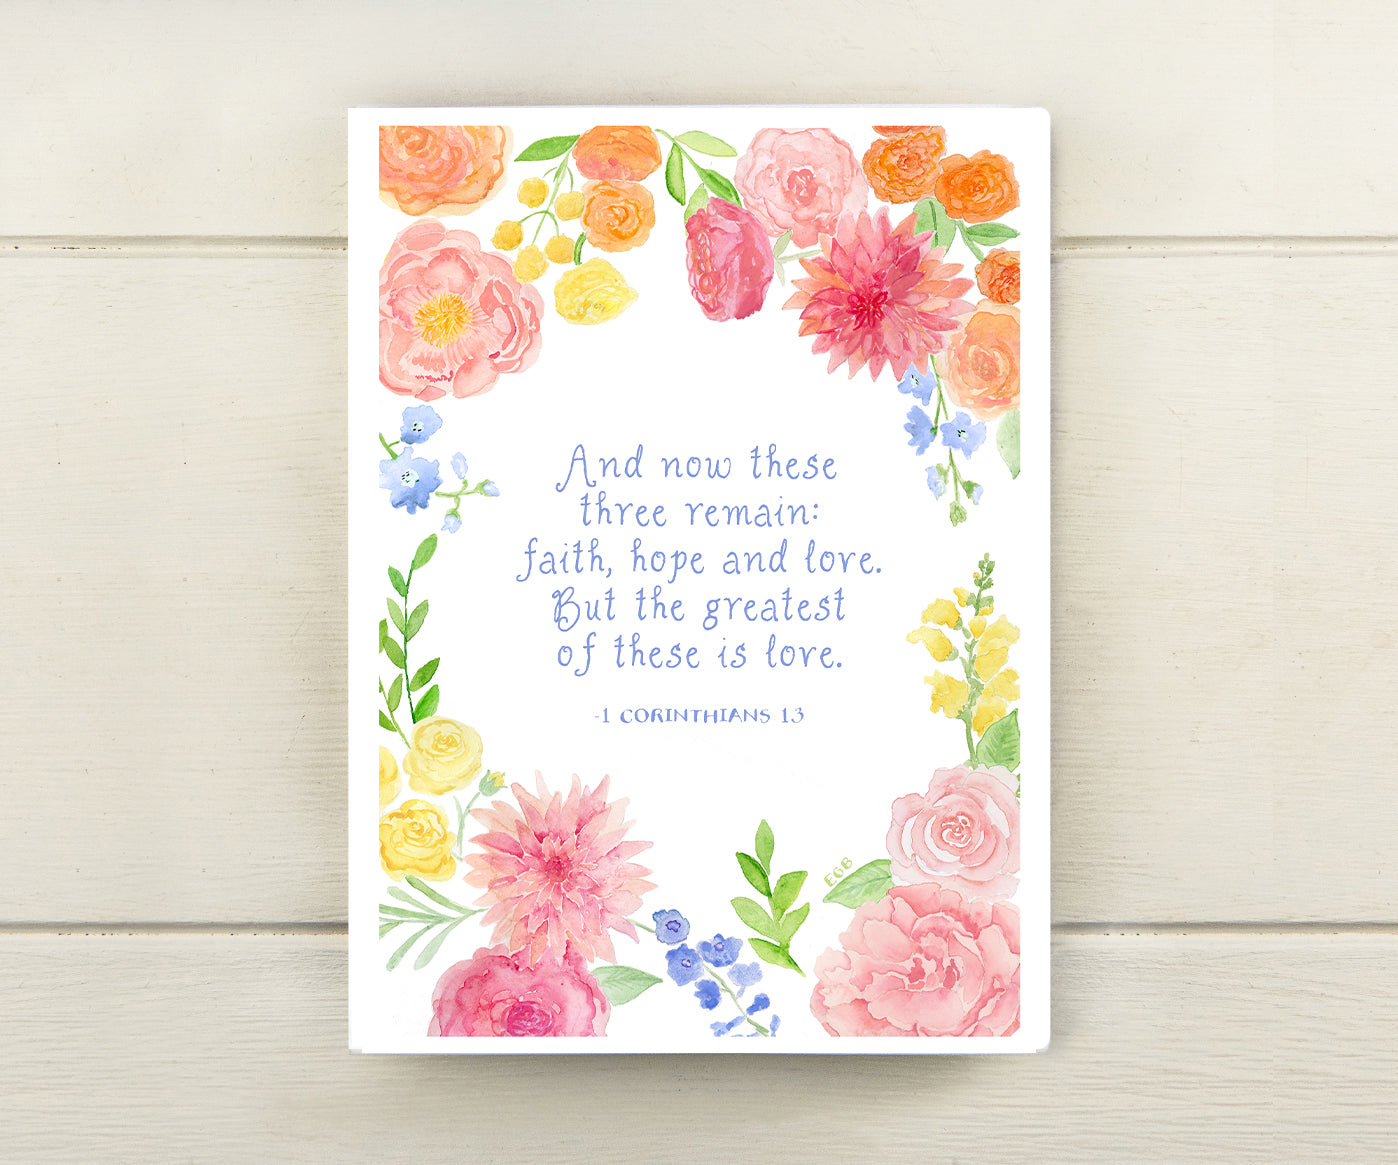 And now these
three remain:
faith, hope and love.
But the greatest
of these is love.
-1 CORINTHIANS 13
EGB